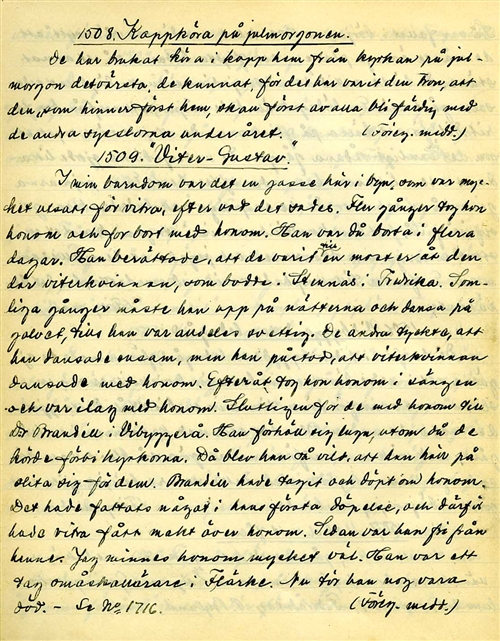 1508. Kappköra på julmorgonen.
De har brukat köra i kapp hem från kyrkan på jul-
morgon det värsta, de kunnat, för det har varit den tron, att
den, som hinner först hem, skall först av alla bli färdig med
de andra sysslorna under året. (Föreg. medd.)
1509. "Viter-Gustav."
I min barndom var det en gosse här i byn, som var myc-
ket utsatt för vitra, efter vad det sades. Flere gånger tog hon
honom och for bort med honom. Han var då borta i flera
dagar. Han berättade, att de varit en moster åt den
där viterkvinnan, som bodde i Stennäs i Fredrika. Som-
liga gånger måste han upp på nätterna och dansa på
golvet, tills han var alldeles svettig. De andra tyckte, att
han dansade ensam, men han påstod, att viterkvinnan
dansade med honom. Efteråt tog hon honom i sängen
och var ilag med honom. Slutligen for de med honom till
Dr Brandell i Vibyggerå. Han förhöll sig lugn, utom då de
körde förbi kyrkorna. Då blev han så vild, att han höll på
slita sig för dem. Brandell hade tagit och döpt om honom.
Det hade fattats något i hans första döpelse, och därför
hade vitra fått makt över honom. Sedan var han fri från
henne. Jag minnes honom mycket väl. Han var ett
tag småskollärare i Flärke. Nu tör han nog vara
död. - Se No. 1716. (Föreg. medd.)